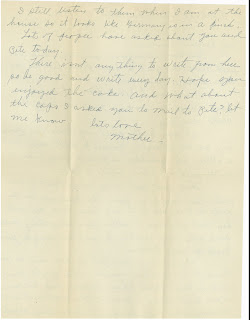 I still listen to them when I am at the
house so it looks like Germany is in a pinch.
Lots of people have asked about you and
Pete today.
There isn't anything to write from here
so be good and write every day. Hope you
enjoyed the cake. And what about
the caps I asked you to mail to Pete? Let
me know. Lots love
Mother.